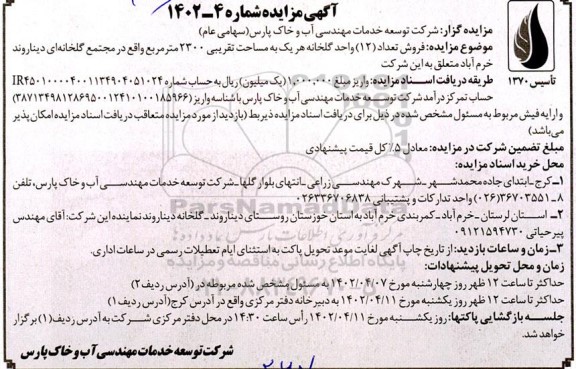 آگهی مزایده شماره ۴-۱۴۰۲
تأسیس ۱۳۷۰
مزایده گزار: شرکت توسعه خدمات مهندسی آب و خاک پارس (سهامی عام)
موضوع مزایده: فروش تعداد (۱۲) واحد گلخانه هر یک به مساحت تقریبی ۲۳۰۰ مترمربع واقع در مجتمع گلخانه‌ای دیناروند
خرم آباد متعلق به این شرکت
طریقه دریافت اسناد مزایده: واریز مبلغ ۱,۰۰۰,۰۰۰ (یک میلیون) ریال به حساب شماره IR۴۵۰۱۰۰۰۰۴۰۰۱۱۳۴۹۰۴۰۵۱۰۲۴
حساب تمرکز درآمد شرکت توسعه خدمات مهندسی آب و خاک پارس با شناسه واریز (۳۸۷۱۳۴۹۸۱۲۸۶۹۵۰۰۱۲۴۱۰۱۰۰۱۸۵۹۶۶)
و ارایه فیش مربوط به مسئول مشخص شده در ذیل برای دریافت اسناد مزایده ذیربط (بازدید از مورد مزایده متعاقب دریافت اسناد مزایده امکان پذیر
می‌باشد)
مبلغ تضمین شرکت در مزایده: معادل ۵٪ کل قیمت پیشنهادی
محل خرید اسناد مزایده:
۱- کرج - ابتدای جاده محمدشهر - شهرک مهندسی زراعی - انتهای بلوار گلها - شرکت توسعه خدمات مهندسی آب و خاک پارس، تلفن
۸ - ۳۶۷۰۳۵۵۱ (۰۲۶) واحد تدارکات و پشتیبانی ۰۲۶۳۳۶۷۰۶۸۳۸
۲ - استان لرستان - خرم آباد - کمربندی خرم آباد به استان خوزستان روستای دیناروند - گلخانه دیناروند نماینده این شرکت: آقای مهندس
پیرحیاتی ۰۹۱۲۱۵۹۴۷۳۰
۳- زمان و ساعات بازدید: از تاریخ چاپ آگهی لغایت موعد تحویل پاکت به استثنای ایام تعطیلات رسمی در ساعات اداری.
زمان و محل تحویل پیشنهادات:
حداکثر تا ساعت ۱۲ ظهر روز چهارشنبه مورخ ۱۴۰۲/۰۴/۰۷ به مسئول مشخص شده مربوطه در (آدرس ردیف ۲)
حداکثر تا ساعت ۱۲ ظهر روز یکشنبه مورخ ۱۴۰۲/۰۴/۱۱ به دبیرخانه دفتر مرکزی واقع در آدرس کرج (آدرس ردیف ۱)
جلسه بازگشایی پاکتها: روز یکشنبه مورخ ۱۴۰۲/۰۴/۱۱ رأس ساعت ۱۴:۳۰ در محل دفتر مرکزی شرکت به آدرس ردیف (۱) برگزار
خواهد شد.
شرکت توسعه خدمات مهندسی آب و خاک پارس